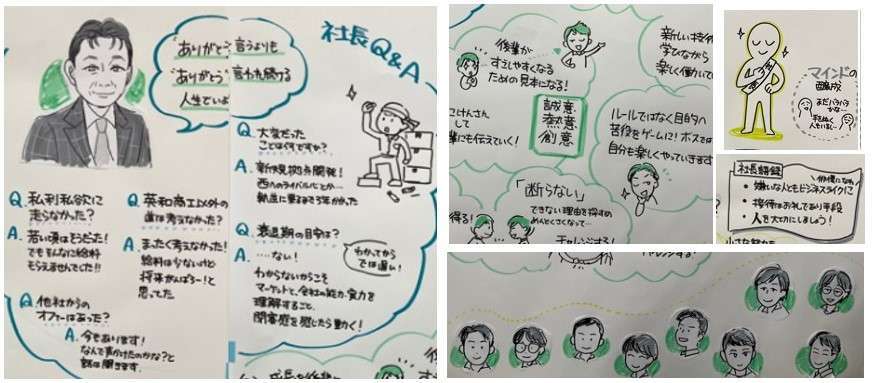 「ありがとう
言うよりも
"ありがとう"
言われ続ける
人生でいよ
社長Q&A
Q. 大変だった
ことは何ですか？
A. 新規拠点開発！
西へのライバルバとか…
軌道に乗るまで3年かかった
Q. 衰退期の目安は？
A. ……ない！
わからないからこそ
マーケットと、会社の能力・実力を
理解すること、
閉塞感を感じたら動く！
わかってから
では遅い！
Q. 私利私欲に
走らなかった？
A. 若い頃はそうだった！
でもそんなに給料
もらえませんでした!!
Q. 英和商工以外の
道は考えなかった？
A. まったく考えなかった！
給料は少ないけど
将来がんばろー！と
思ってた
Q. 他社からの
オファーはあった？
A. 今もあります！
なんで声かけたのかな？と
話は聞きます。
後輩が
すごしやすくなる
ための見本になる！
新しい技術
学びながら
楽しく働いて
誠意
熱意
創意
こけんさん
して
輩にも伝えていく！
ルールではなく目的へ
苦役をゲームに！ボスでは
自分も楽しくやっていきます
「断らない」
できない理由を探すの
めんどくさくなって…
得る！
チャレンジする！
マインドの
醸成
まだバラバラ
かな…
手をぬく
人もいるし…
社長語録
・嫌いな人ともビジネスライクに
・接待はお礼であり手段
・人を大切にしましょう！